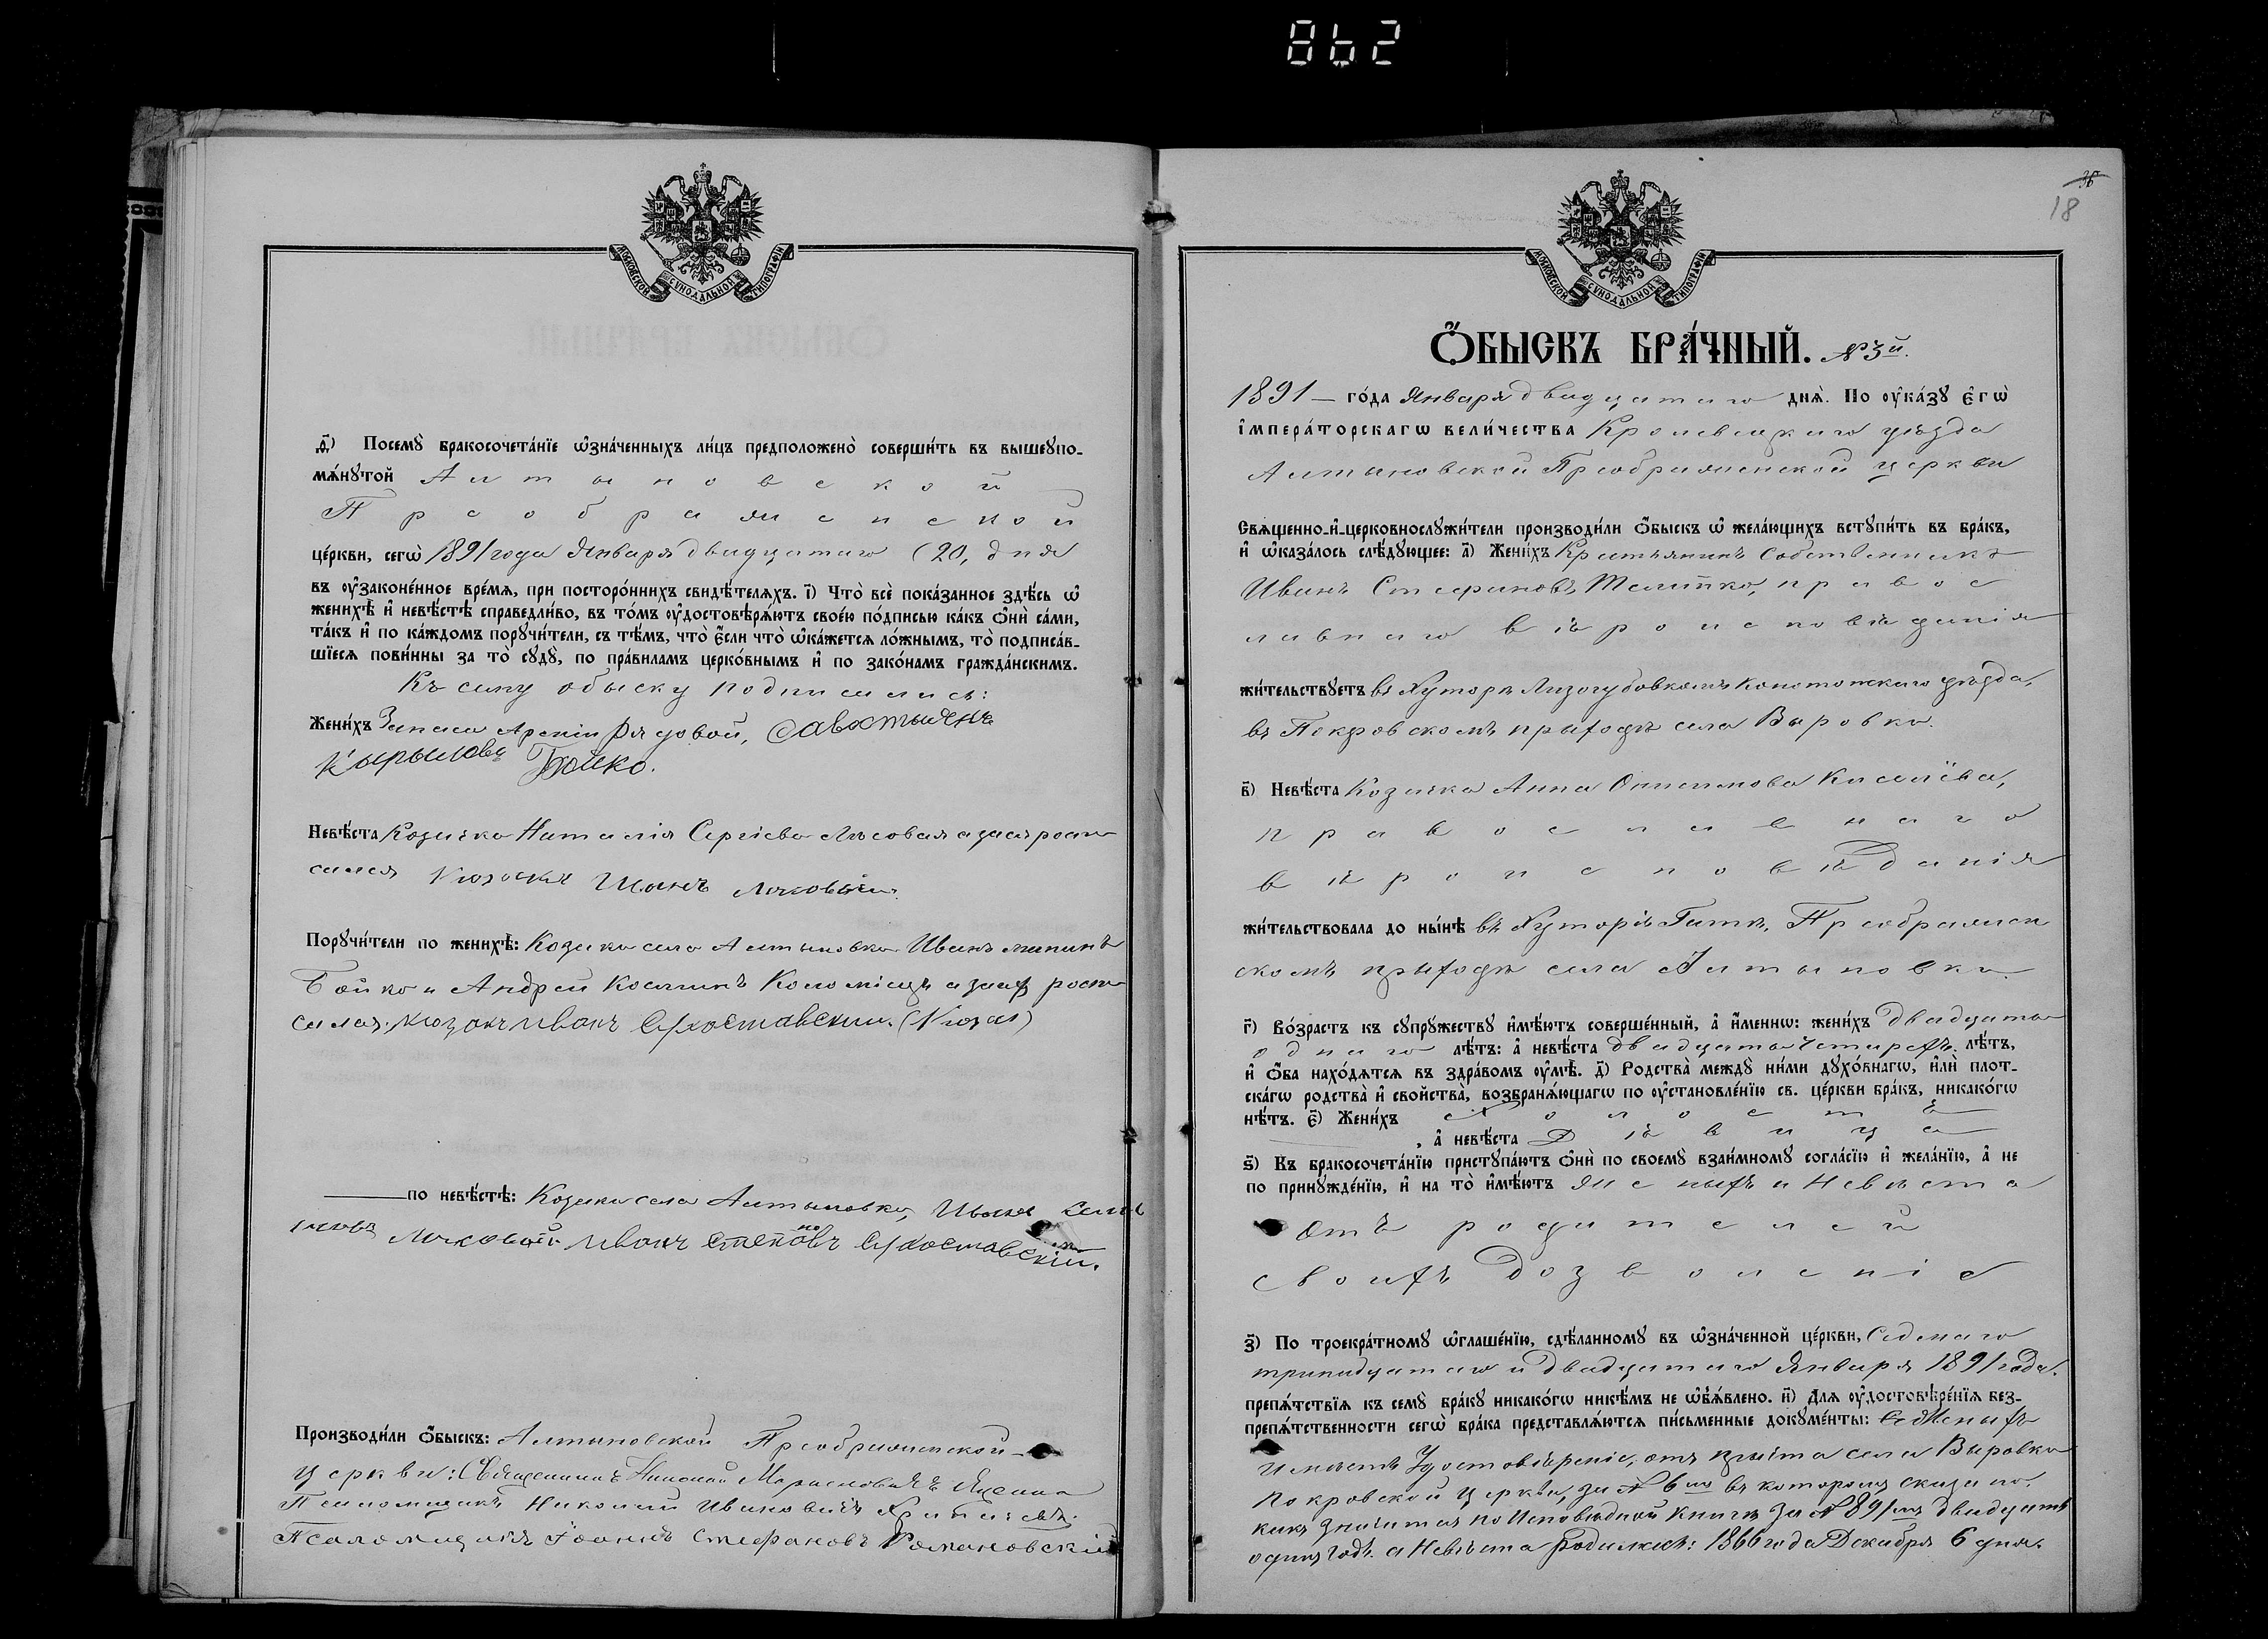 862
МОСКОВСКОЙ СѴНОДАЛЬНОЙ ТИПОГРАФІИ
ѳ҃) Посемꙋ̀ бракосочета́нїе ѡ҆зна́ченныхъ ли́цъ предположено̀ соверши́ть въ вышеꙋпо-
мѧ́нꙋтой Алтыновской
Преображенской
це́ркви, сегѡ̀ 1891 года Января двадцатаго (20, дня
въ ᲂу҆законе́нное вре́мѧ, при посторо́ннихъ свидѣ́телѧхъ. і҃) Что̀ всѐ пока́занное здѣ́сь ѡ҆
женихѣ̀ и҆ невѣ́стѣ справедли́во, въ то́мъ ᲂу҆достовѣрѧ́ютъ свое́ю по́дписью ка́къ ѻ҆нѝ са́ми,
та́къ и҆ по ка́ждомъ порꙋчи́тели, съ тѣ́мъ, что̀ є҆́сли что̀ ѡ҆ка́жетсѧ ло́жнымъ, то̀ подписа́в-
шїесѧ пови́нны за то̀ сꙋдꙋ̀, по пра́виламъ церко́внымъ и҆ по зако́намъ гражда́нскимъ.
Къ сему обыску подписались:
Жени́хъ Запаса Арміи Рядовой, Савостьянъ
Кырыловъ Бойко.
Невѣ́ста Козачка Наталія Сергіева Лысовая а за нея роспи
сался Козакъ Иванъ
Порꙋчи́тели по женихѣ̀: Козаки села Алтыновки Иванъ
Бойко и Андрей Косминъ Коломіецъ а за нихъ роспи
сался: козакъ Иванъ Сухоставский. (Козак)
по невѣ́стѣ: Козаки села Алтыновки, Иванъ
Иванъ Степановъ Сухоставскій.
Производи́ли ѻ҆́быскъ: Алтыновской Преображенской
церкви: Священникъ Николай
Николай Ивановичъ
Псаломщикъ Іоаннъ Стефановъ Романовскій
МОСКОВСКОЙ СѴНОДАЛЬНОЙ ТИПОГРАФІИ
36
18
Ѻ҆́БЫСКЪ БРА́ЧНЫЙ. №3й.
1891 – го́да Января двадцатаго днѧ̀. По ᲂу҆ка́зꙋ є҆гѡ̀
і҆мпера́торскагѡ вели́чества Кролевецкаго уѣзда
Алтыновской Преображенской церкви
Свѧще́нно-и҆-церковнослꙋжи́тели производи́ли ѻ҆́быскъ ѡ҆ жела́ющихъ встꙋпи́ть въ бра́къ,
и҆ ѡ҆каза́лось слѣ́дꙋющее: а҃) Жени́хъ Крестьянинъ Собственникъ
Иванъ Стефановъ Желитко, правос
лавнаго вѣроисповѣданія
жи́тельствꙋетъ въ Хуторѣ Лизогубовкомъ Конотопскаго уѣзда,
въ Покровскомъ приходѣ села Выровки.
в҃) Невѣ́ста Козачка Анна Онисимова Киселёва,
православнаго
вѣроисповѣданія
жи́тельствовала до ны́нѣ въ Хуторѣ Гити, Преображен
скомъ приходѣ села Алтыновки.
г҃) Во́зрастъ къ сꙋпрꙋжествꙋ и҆мѣ́ютъ соверше́нный, а҆ и҆́меннѡ: жени́хъ двадцать
одного лѣ́тъ: а҆ невѣ́ста двадцать четырехъ. лѣ́тъ,
и҆ ѻ҆́ба нахо́дѧтсѧ въ здра́вомъ ᲂу҆мѣ̀. д҃) Родства̀ междꙋ̀ ни́ми дꙋхо́внагѡ, и҆лѝ плот-
ска́гѡ родства̀ и҆ сво́йства, возбранѧ́ющагѡ по ᲂу҆становле́нїю св. це́ркви бра́къ, никако́гѡ
нѣ́тъ. є҃) Жени́хъ Холостъ
, а҆ невѣ́ста Дѣвица
ѕ҃) Къ бракосочета́нїю пристꙋпа́ютъ ѻ҆нѝ по своемꙋ̀ взаи́мномꙋ согла́сїю и҆ жела́нїю, а҆ не
по принꙋжде́нїю, и҆ на то̀ и҆мѣ́ютъ Женихъ и Невѣста
отъ родителей
своихъ дозволеніе
з҃) По троекра́тномꙋ ѡ҆глаше́нїю, сдѣ́ланномꙋ въ ѡ҆зна́ченной це́ркви, Седмаго
тринадцатаго и двадцатаго Января 1891 года.
препѧ́тствїѧ къ семꙋ̀ бра́кꙋ никако́гѡ нике́мъ не ѡ҆б̾ѧ́влено. и҃) Длѧ ᲂу҆достовѣре́нїѧ без-
препѧ́тственности сегѡ̀ бра́ка представлѧ́ютсѧ пи́сьменные докꙋме́нты: Женихъ
имѣетъ Удостовѣреніе, отъ причта села Выровки
Покровской церкви, за №6мъ въ которомъ сказано.
какъ значится по Исповѣдной книгѣ за №89/мъ двадцать
одинъ годъ. а Невѣста родилась: 1866 года Декабря 6 дня.